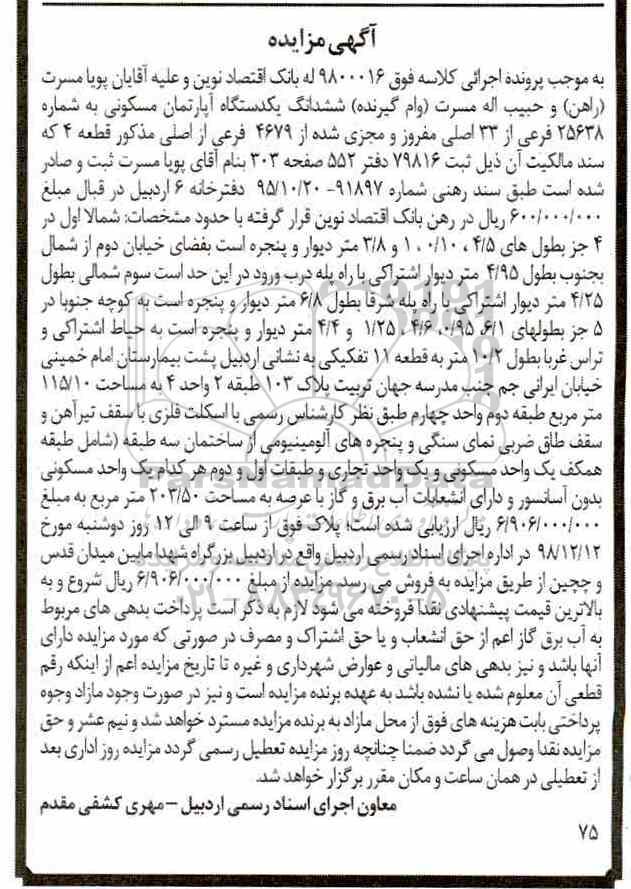 آگهی مزایده
به موجب پرونده اجرائی کلاسه فوق ۹۸۰۰۰۱۶ له بانک اقتصاد نوین و علیه آقایان پویا مسرت
(راهن) و حبیب اله مسرت (وام گیرنده) ششدانگ یکدستگاه آپارتمان مسکونی به شماره
۲۵۶۳۸ فرعی از ۳۳ اصلی مفروز و مجزی شده از ۴۶۷۹ فرعی از اصلی مذکور قطعه ۴ که
سند مالکیت آن ذیل ثبت ۷۹۸۱۶ دفتر ۵۵۲ صفحه ۳۰۳ بنام آقای پویا مسرت ثبت و صادر
شده است طبق سند رهنی شماره ۹۱۸۹۷- ۹۵/۱۰/۲۰ دفترخانه ۶ اردبیل در قبال مبلغ
۶۰۰/۰۰۰/۰۰۰ ریال در رهن بانک اقتصاد نوین قرار گرفته با حدود مشخصات: شمالا اول در
۴ جز بطول های ۴/۵ ، ۰/۱۰ ، ۱ و ۳/۸ متر دیوار و پنجره است بفضای خیابان دوم از شمال
بجنوب بطول ۴/۹۵ متر دیوار اشتراکی با راه پله درب ورود در این حد است سوم شمالی بطول
۴/۲۵ متر دیوار اشتراکی با راه پله شرقا بطول ۶/۸ متر دیوار و پنجره است به کوچه جنوبا در
۵ جز بطولهای ۶/۱، ۰/۹۵، ۴/۶ ، ۱/۲۵ و ۴/۴ متر دیوار و پنجره است به حیاط اشتراکی و
تراس غربا بطول ۱۰/۲ متر به قطعه ۱۱ تفکیکی به نشانی اردبیل پشت بیمارستان امام خمینی
خیابان ایرانی جم جنب مدرسه جهان تربیت پلاک ۱۰۳ طبقه ۲ واحد ۴ به مساحت ۱۱۵/۱۰
متر مربع طبقه دوم واحد چهارم طبق نظر کارشناس رسمی با اسکلت فلزی با سقف تیرآهن و
سقف طاق ضربی نمای سنگی و پنجره های آلومینیومی از ساختمان سه طبقه (شامل طبقه
همکف یک واحد مسکونی و یک واحد تجاری و طبقات اول و دوم هر کدام یک واحد مسکونی
بدون آسانسور و دارای انشعابات آب برق و گاز با عرصه به مساحت ۲۰۳/۵۰ متر مربع به مبلغ
۶/۹۰۶/۰۰۰/۰۰۰ ریال ارزیابی شده است؛ پلاک فوق از ساعت ۹ الی ۱۲ روز دوشنبه مورخ
۹۸/۱۲/۱۲ در اداره اجرای اسناد رسمی اردبیل واقع در اردبیل بزرگراه شهدا مابین میدان قدس
و ججین از طریق مزایده به فروش می رسد. مزایده از مبلغ ۶/۹۰۶/۰۰۰/۰۰۰ ریال شروع و به
بالاترین قیمت پیشنهادی نقدا فروخته می شود لازم به ذکر است پرداخت بدهی های مربوط
به آب برق گاز اعم از حق انشعاب و یا حق اشتراک و مصرف در صورتی که مورد مزایده دارای
آنها باشد و نیز بدهی های مالیاتی و عوارض شهرداری و غیره تا تاریخ مزایده اعم از اینکه رقم
قطعی آن معلوم شده یا نشده باشد به عهده برنده مزایده است و نیز در صورت وجود مازاد وجوه
پرداختی بابت هزینه های فوق از محل مازاد به برنده مزایده مسترد خواهد شد و نیم عشر و حق
مزایده نقدا وصول می گردد ضمنا چنانچه روز مزایده تعطیل رسمی گردد مزایده روز اداری بعد
از تعطیلی در همان ساعت و مکان مقرر برگزار خواهد شد.
معاون اجرای اسناد رسمی اردبیل – مهری کشفی مقدم
۷۵
ParsNamadData